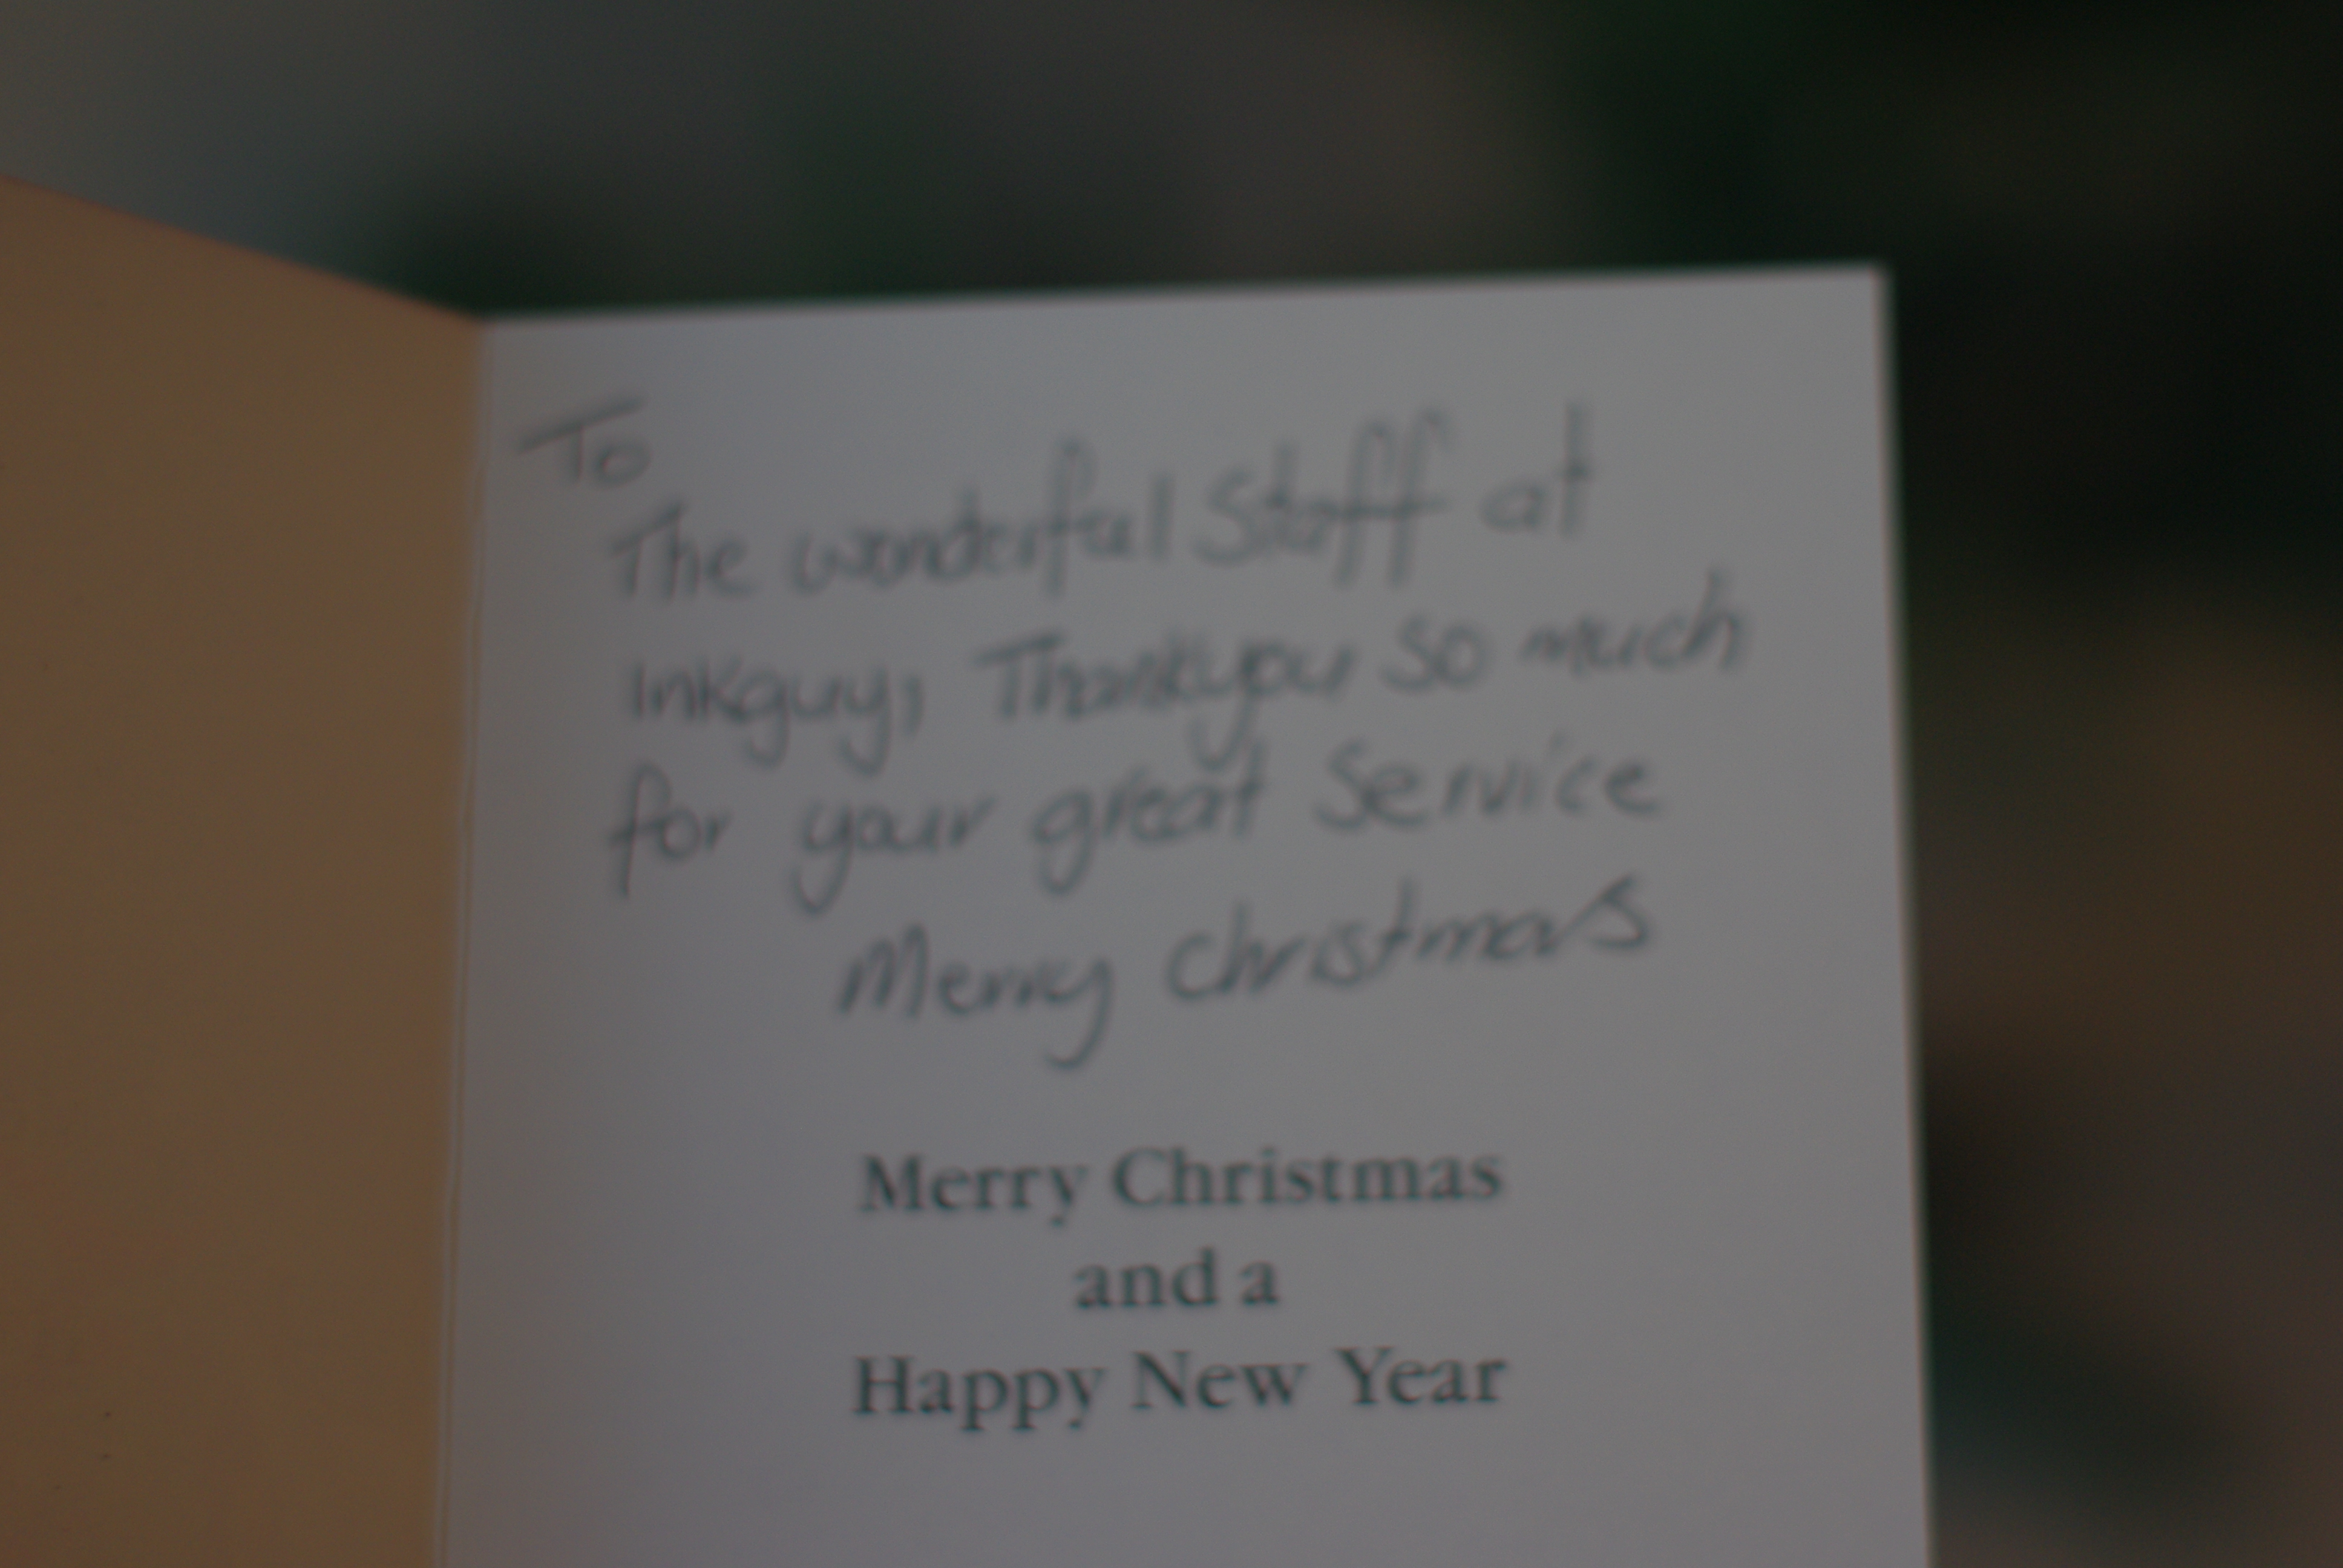 To
The wonderful Staff at
Inkguy, Thankyou so much
for your great Service
Merry Christmas
Merry Christmas
and a
Happy New Year